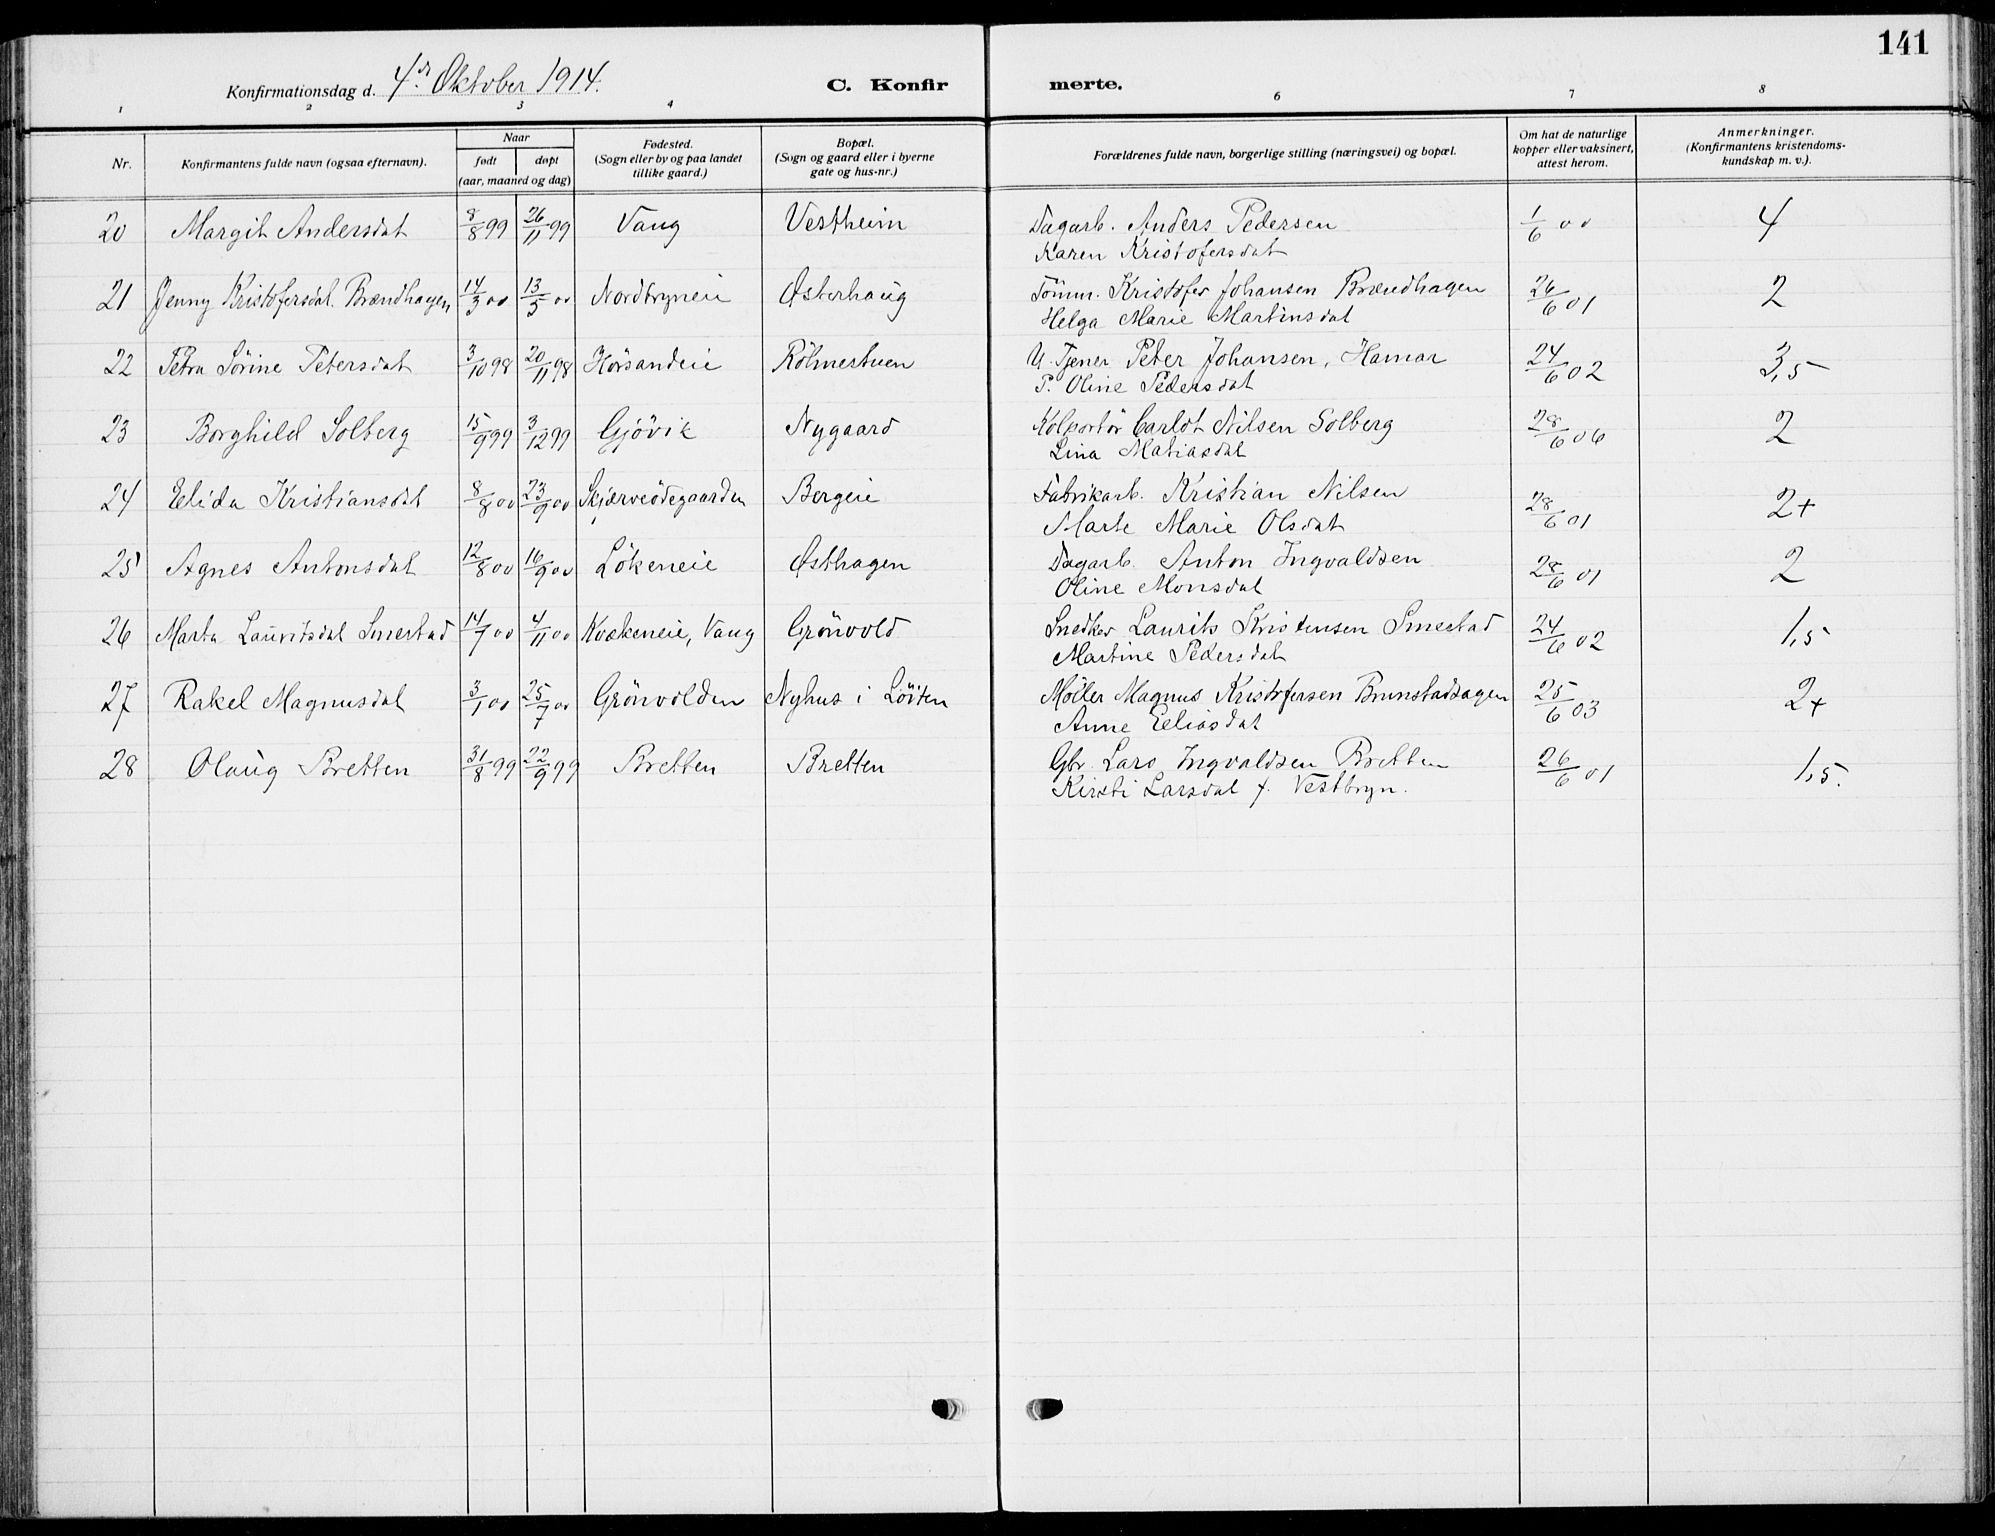 141
Konfirmationsdag d. 4de Oktober 1914.
C. Konfirmerte.
1 2 3 4 6 7 8
Nr.
Konfirmantens fulde navn (ogsaa efternavn).
Naar
født
døpt
(aar, maaned og dag)
Fødested.
(Sogn eller by og paa landet
tillike gaard.)
Bopæl.
(Sogn og gaard eller i byerne
gate og hus-nr.)
Forældrenes fulde navn, borgerlige stilling (næringsvei) og bopæl.
Om hat de naturlige
kopper eller vaksinert,
attest herom.
Anmerkninger.
(Konfirmantens kristendoms-
kundskap m. v.).
20 Margit Andersdat 8/8 99 26/11 99 Vang Vestheim Dagarb. Anders Pedersen 1/6 00 4
Karen Kristofersdat
21 Jenny Kristofersdat. Brændhagen 14/3 00 13/5 00 Nordbryneie Østerhaug Tömm. Kristofer Johansen Brændhagen 26/6 01 2
Helga Marie Martinsdat
22 Petra Sörine Petersdat 3/10 98 20/11 98 Hörsandeie Rölmestuen U. Tjener Peter Johansen, Hamar 24/6 02 3,5
P. Oline Pedersdat
23 Borghild Solberg 15/9 99 3/12 99 Gjövik Nygaard Kolportör Carlot Nilsen Solberg 28/6 06 2
Lina Matiasdat
24 Elida Kristiansdat 8/8 00 23/9 00 Skjærveödegaarden Bergeie Fabrikarb. Kristian Nilsen 28/6 01 2+
Marte Marie Olsdat
25 Agnes Antonsdat 12/8 00 16/9 00 Lökeneie Østhagen Dagarb. Anton Ingvaldsen 28/6 01 2
Oline Monsdat
26 Marta Lauritsdat Smestad 14/7 00 4/11 00 Kvækeneie, Vang Grönvold Snedker Laurits Kristensen Smestad 24/6 02 1,5
Martine Pedersdat
27 Rakel Magnusdat 3/1 00 25/7 00 Grönvolden Nyhus i Löiten Möller Magnus Kristofersen Brunstadhagen 25/6 03 2+
Anne Eeliasdat
28 Olaug Bretten 31/8 99 22/9 99 Bretten Bretten Gbr. Lars Ingvaldsen Bretten 26/6 01 1,5.
Kirsti Larsdat f. Vestbryn.